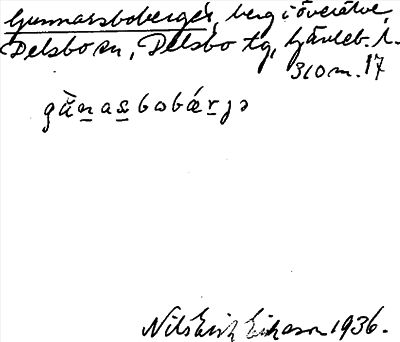 Gunnarsbobergeś, berg i överätve,
Delsbo sn, Delsbo tg, Gävleb. l.
310 m. 17
gànasbobǽrjə
Nils Erik Erikson 1936.